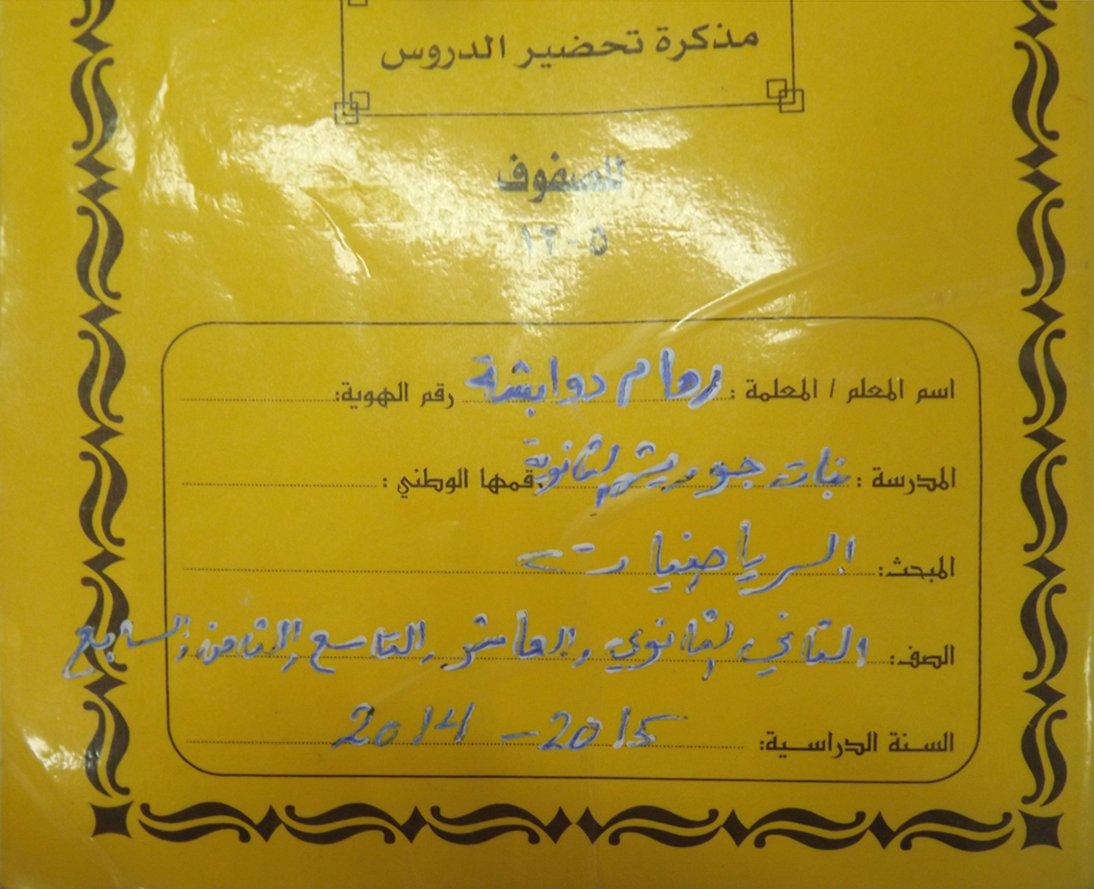 مذكرة تحضير الدروس
للصفوف
٥ - ١٢
اسم المعلم / المعلمة : رهام دوابشة رقم الهوية:
المدرسة : بنات جوريش الثانوية رقمها الوطني :
المبحث: الرياضيات
الصف: الثاني الثانوي، العاشر، التاسع، الثامن، السابع
السنة الدراسية: 2014 - 2015